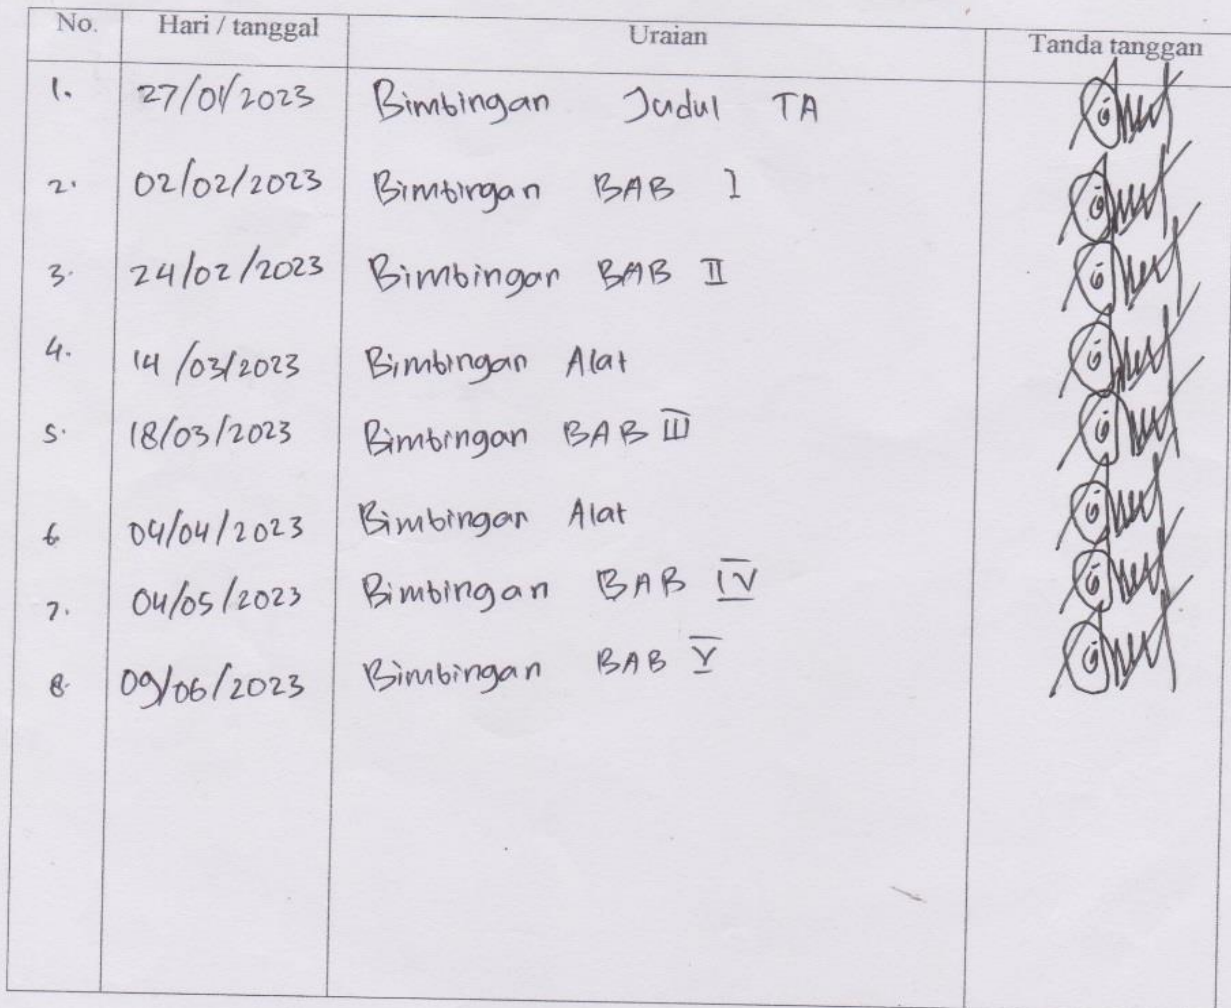 No. Hari / tanggal Uraian Tanda tanggan
1. 27/01/2023 Bimbingan Judul TA
2. 02/02/2023 Bimbingan BAB I
3. 24/02/2023 Bimbingan BAB II
4. 14/03/2023 Bimbingan Alat
5. 18/03/2023 Bimbingan BAB III
6 04/04/2023 Bimbingan Alat
7. 04/05/2023 Bimbingan BAB IV
8. 09/06/2023 Bimbingan BAB V